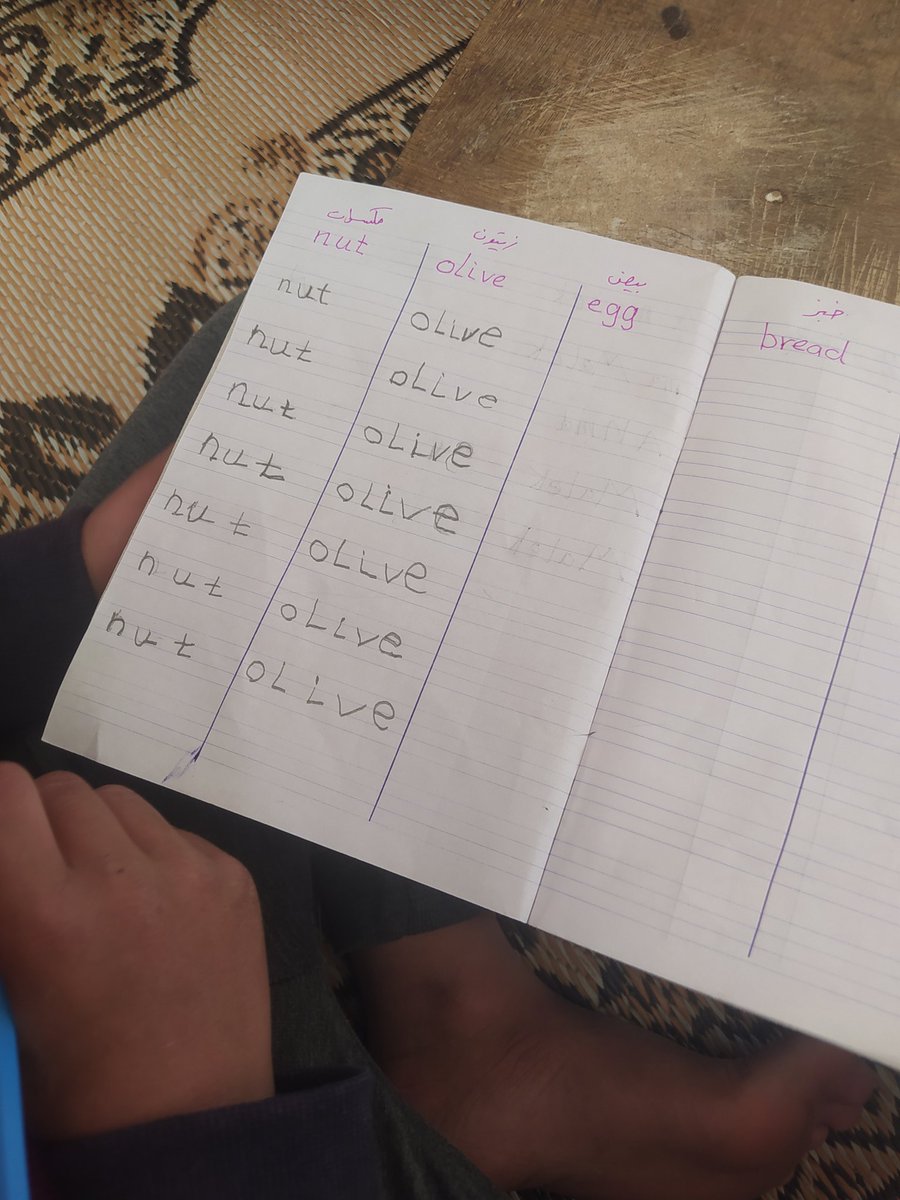 مكسرات
nut
nut
nut
nut
nut
nut
nut
nut
زيتون
olive
oLive
oLive
oLive
oLive
oLive
oLive
oLive
بيض
egg
خبز
bread